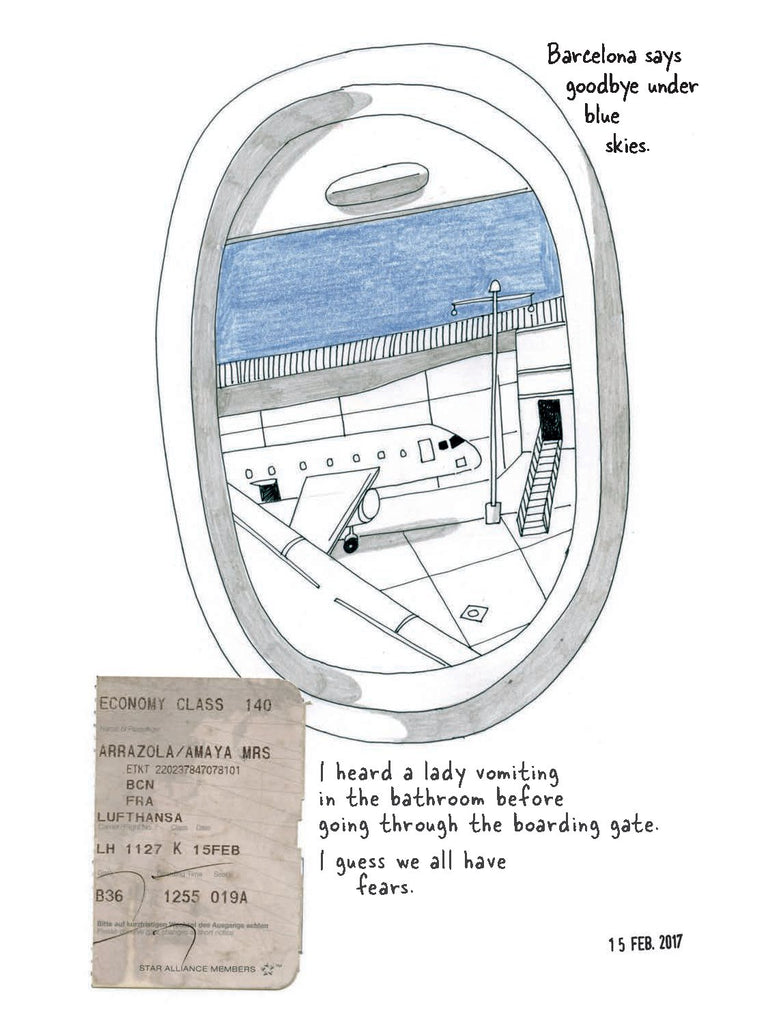 Barcelona says
goodbye under
blue
skies.
ECONOMY CLASS 140
Name of Passenger
ARRAZOLA/AMAYA MRS
ETKT 220237847078101
BCN
FRA
LUFTHANSA
Carrier/Flight No. Class Date
LH 1127 K 15FEB
Gate Boarding Time Seat
B36 1255 019A
Bitte auf kurzfristigen Wechsel des Ausgangs achten
Please observe gate changes at short notice
STAR ALLIANCE MEMBERS
I heard a lady vomiting
in the bathroom before
going through the boarding gate.
I guess we all have
fears.
15 FEB. 2017